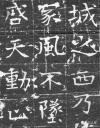 城西乃
家風不墜
啓天動